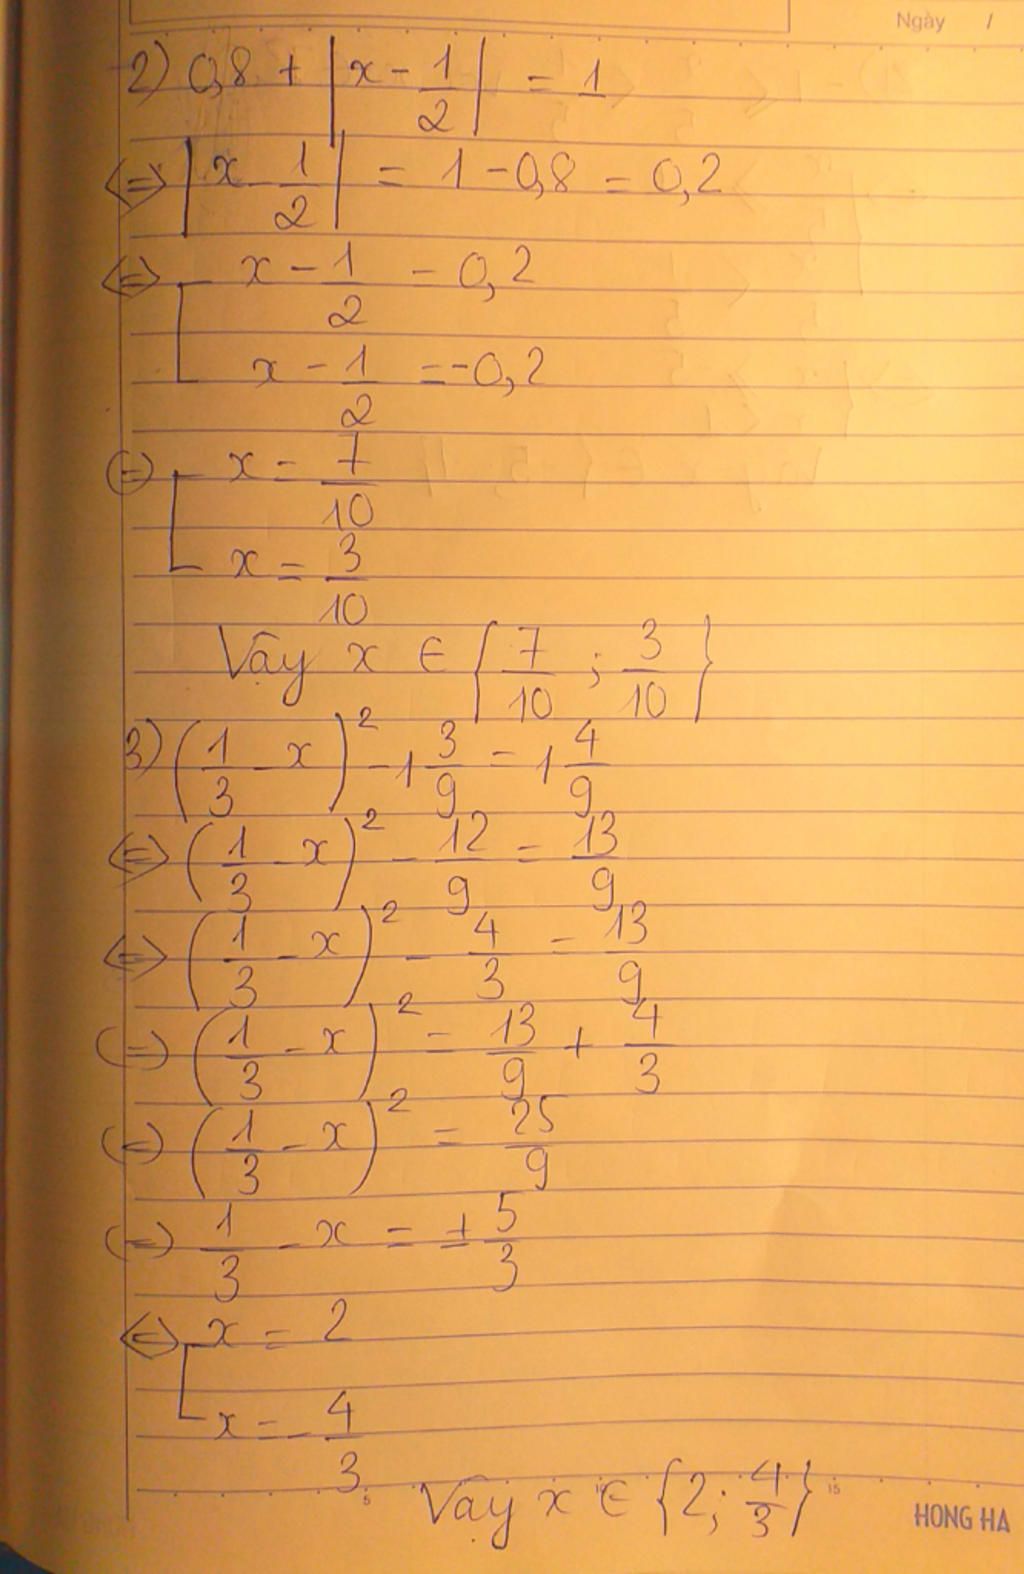 Ngày /
2) 0,8 + |x - 1/2| = 1
<=> |x - 1/2| = 1 - 0,8 = 0,2
<=> x - 1/2 = 0,2
x - 1/2 = -0,2
(=) x = 7/10
x = 3/10
Vậy x ∈ {7/10 ; 3/10}
3) (1/3 - x)² - 1 3/9 = 1 4/9
<=> (1/3 - x)² - 12/9 = 13/9
<=> (1/3 - x)² - 4/3 = 13/9
(=) (1/3 - x)² = 13/9 + 4/3
(=) (1/3 - x)² = 25/9
(=) 1/3 - x = ± 5/3
<=> x = 2
x = - 4/3
Vậy x ∈ {2; 4/3}
5 10 15
HONG HA